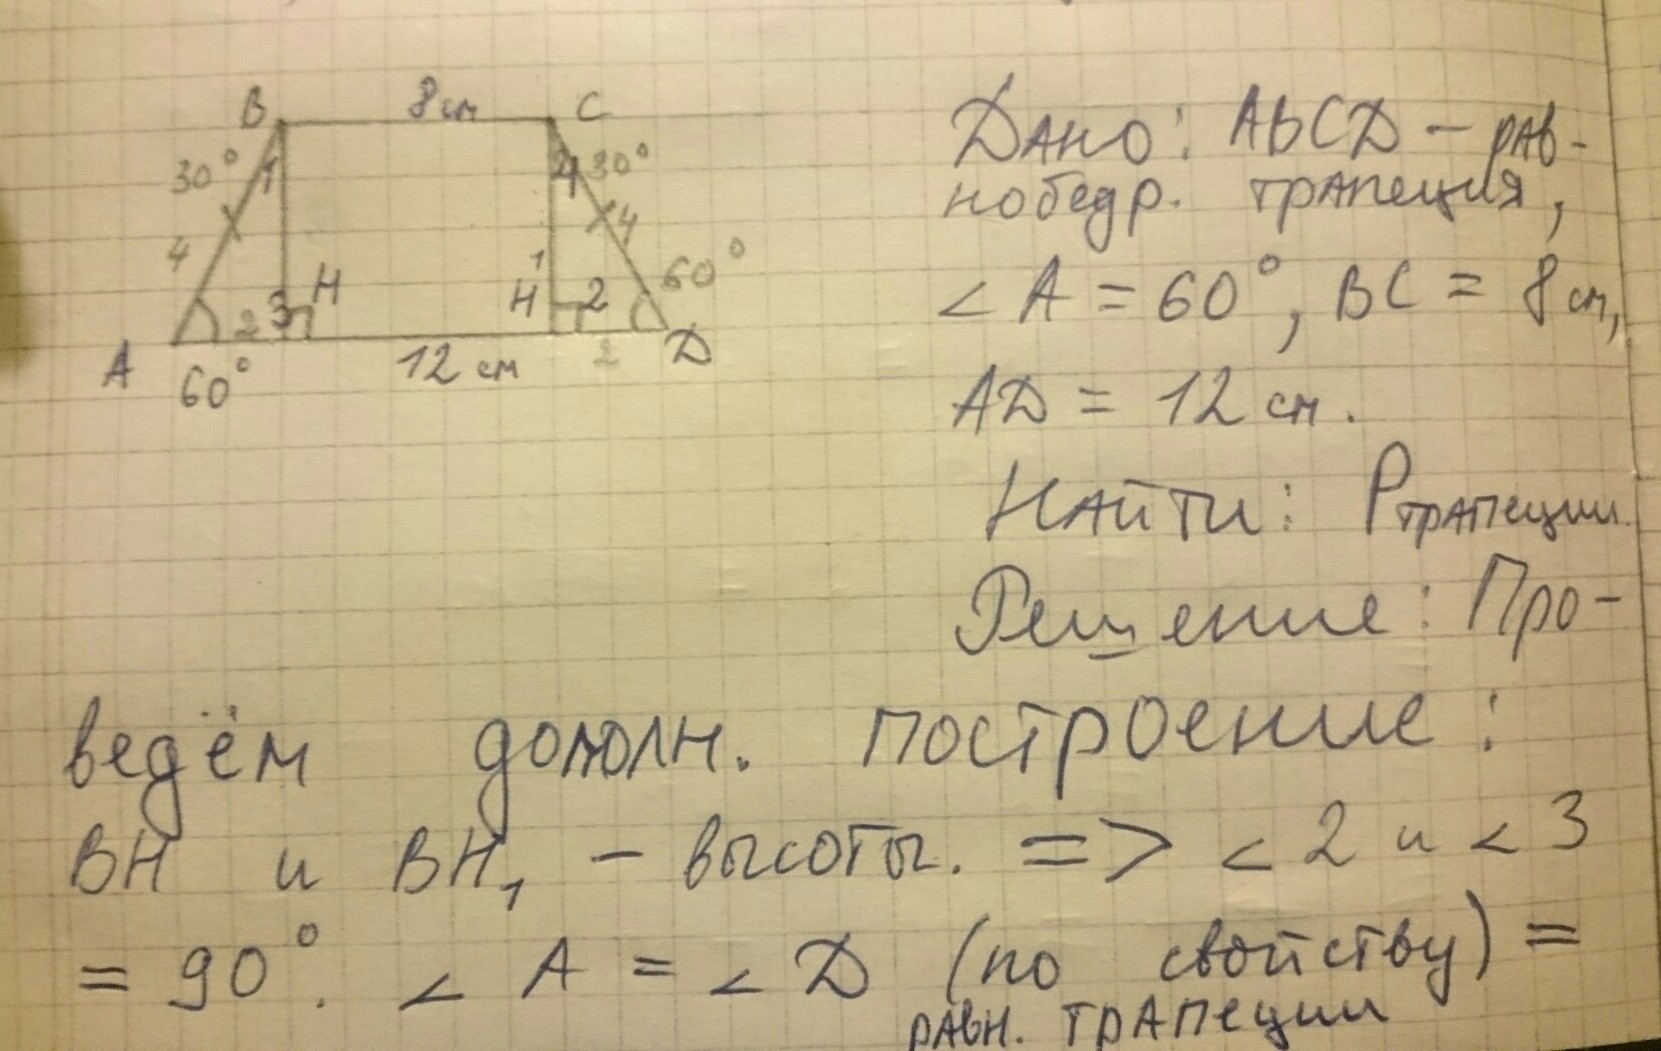 B 8 см C
30° 1 4 30°
4 4
60°
H H1 2
2 3 2
A 60° 12 см D
Дано: ABCD – рав-
нобедр. трапеция,
< A = 60°, BC = 8 см,
AD = 12 см.
Найти: Pтрапеции.
Решение: Про-
ведём дополн. построение:
BH и BH1 – высоты. => < 2 и < 3
= 90°. < A = < D (по свойству) =
равн. трапеции